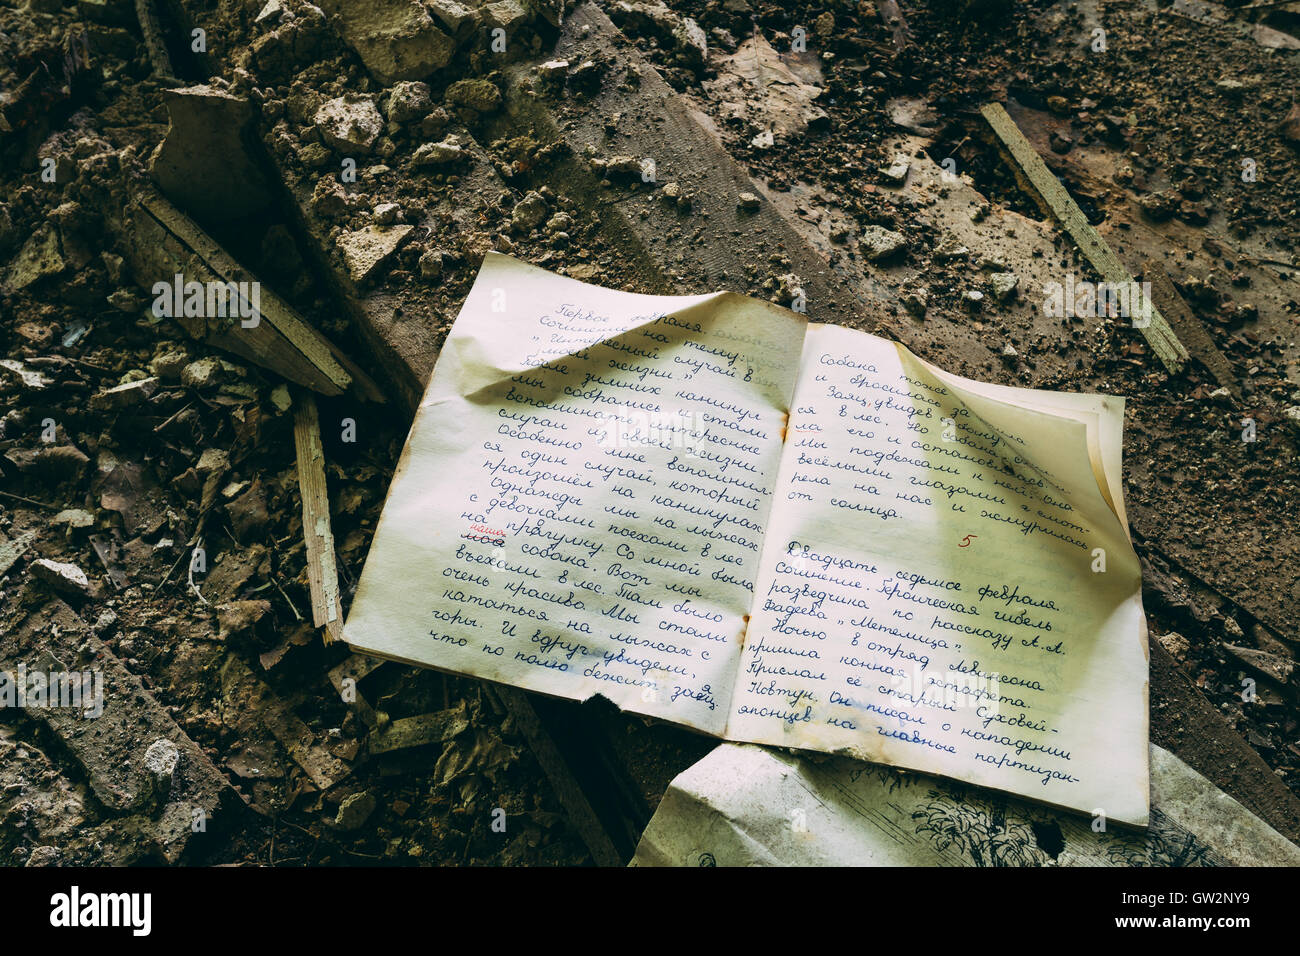 Первое февраля.
Сочинение на тему:
„Интересный случай в
моей жизни."
После зимних каникул
мы собрались и стали
вспоминать интересные
случаи в своей жизни.
Особенно мне вспомнил-
ся один случай, который
произошёл на каникулах.
Однажды мы на лыжах
с девочками поехали в лес
на прогулку. Со мной была
наша
моя собака. Вот мы
въехали в лес. Там было
очень красиво. Мы стали
кататься на лыжах с
горы. И вдруг увидели, я
что по полю бежит заяц.
Собака тоже
и бросилась за
Заяц, увидев собаку,
ся в лес. Но собака
ла его и остановилась.
мы подбежали к ней. Она
весёлыми глазами смот-
рела на нас и жмурилась
от солнца.
5
Двадцать седьмое февраля.
Сочинение. Героическая гибель
разведчика по рассказу А. А.
Фадеева „Метелица".
Ночью в отряд Левинсона
пришла конная эстафета.
Прислал её старый Суховей-
Ковтун. Он писал о нападении
японцев на главные партизан-
alamy
alamy
a
a
a
alamy stock photo
GW2NY9
www.alamy.com